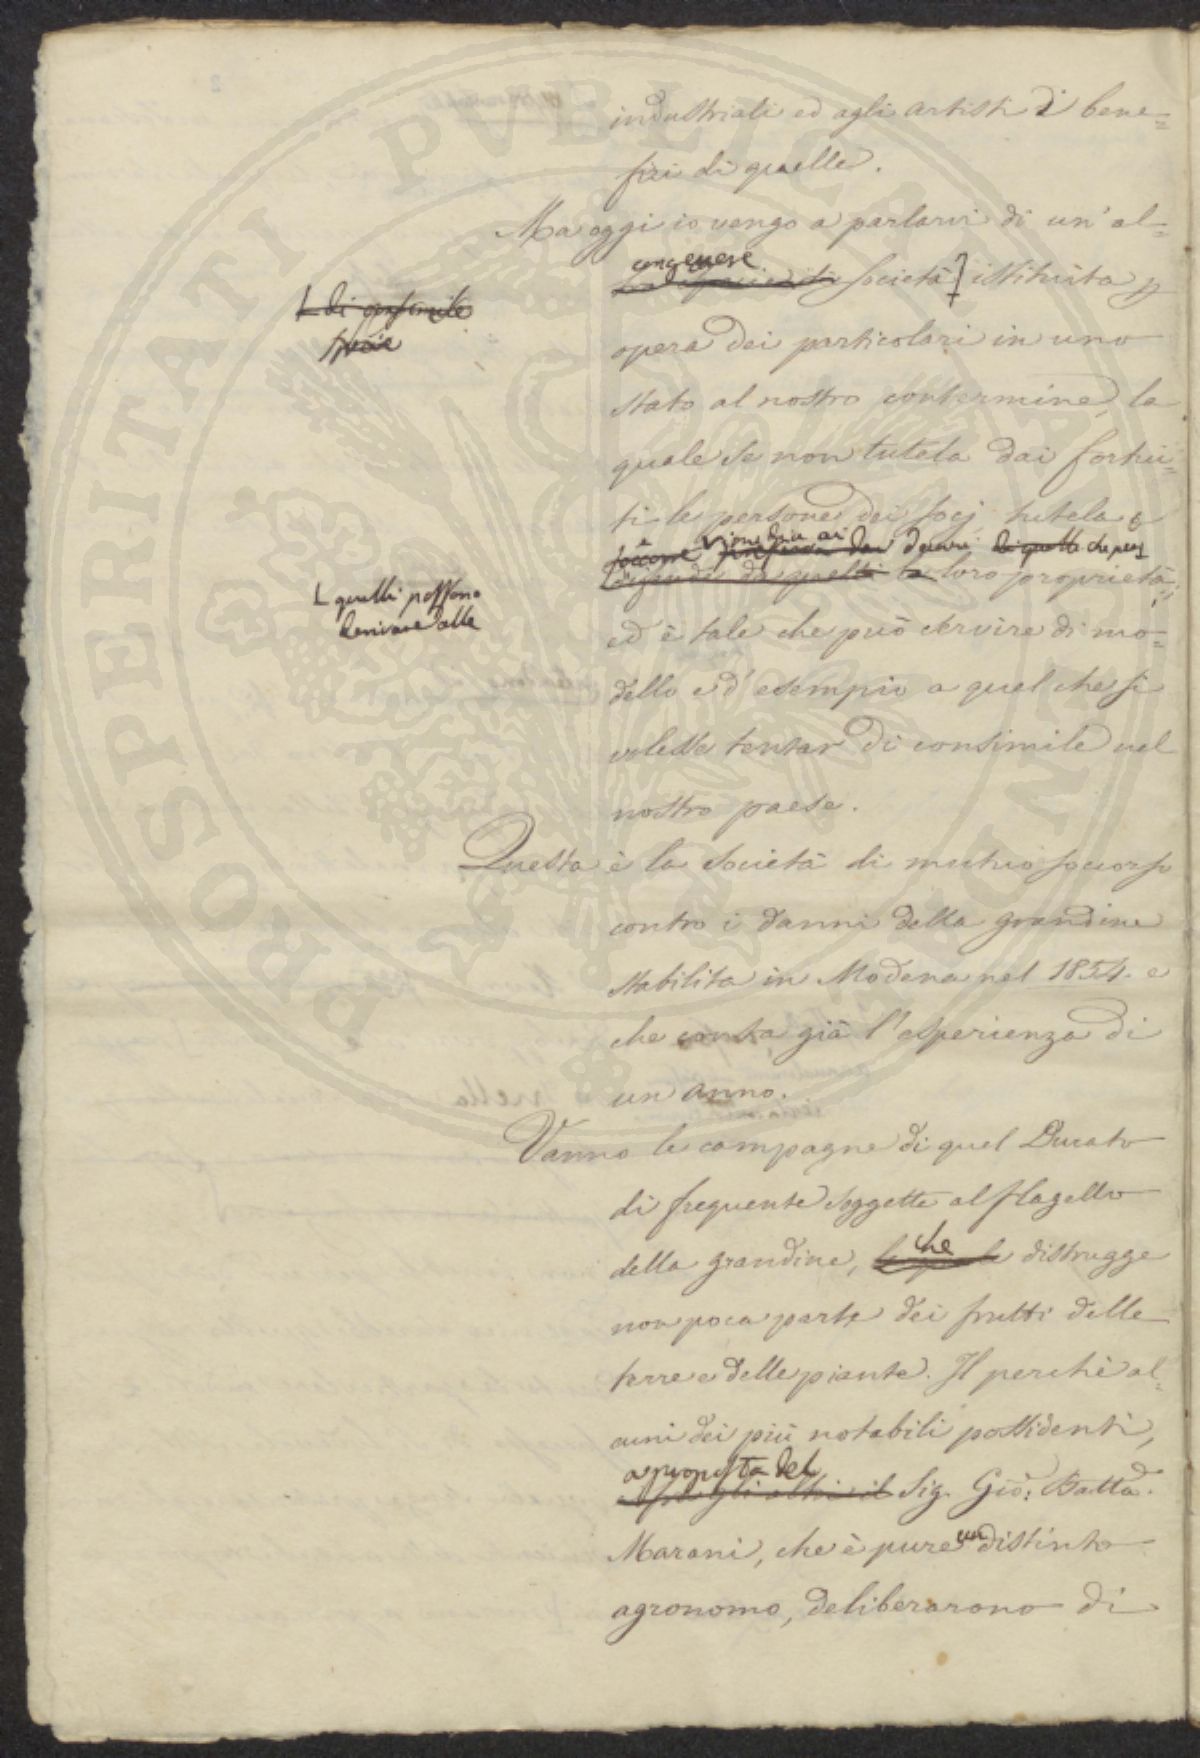 industriali ed agli artisti i bene=
fizi di quelle.
Ma oggi io vengo a parlarvi di un' al=
congenere
società istituita p
L di consimile
specie
opera dei particolari in uno
stato al nostro contermine, la
quale se non tutela dai fortui=
ti le persone dei socj, tutela e
soccorre danni che
difende loro proprietà;
L quelli possono
derivare alle
ed è tale che può servire di mo=
dello e d' esempio a quel che si
volesse tentar di consimile nel
nostro paese.
Questa è la società di mutuo soccorso
contro i danni della grandine
stabilita in Modena nel 1854. e
che conta già l'esperienza di
un anno.
Vanno le campagne di quel Ducato
di frequente soggette al flagello
che
della grandine, la quale distrugge
non poca parte dei frutti delle
terre e delle piante. Il perchè al=
cuni dei più notabili possidenti,
a proposta del
fra gli altri il Sig. Gio: Batta.
Marani, che è pure un distinto
agronomo, deliberarono di
PROSPERITATI PUBLICAE AUGENDAE